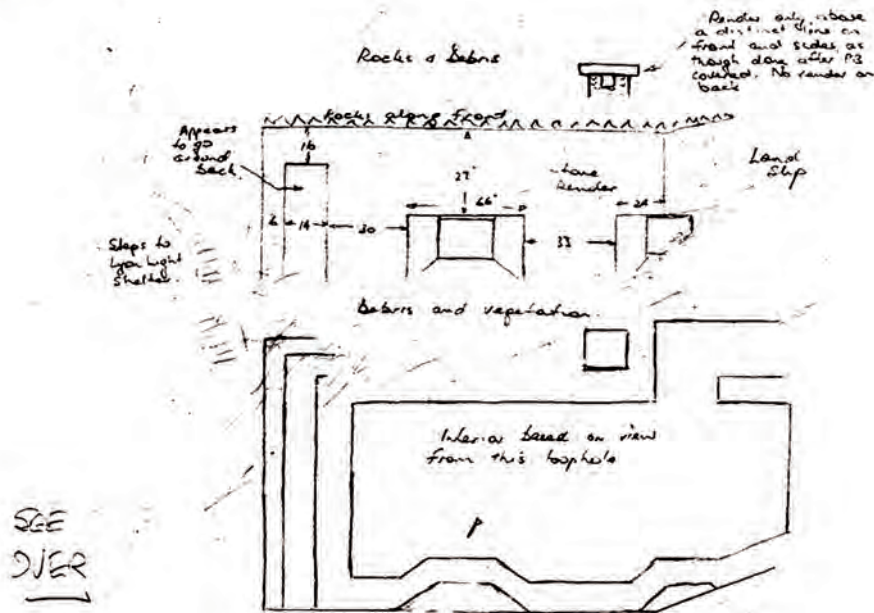 Render only above
a distinct line on
front and sides, as
though done after PB
covered. No render on
back
Rocks & Debris
Rocks along front
Appears
to go
around
back
16
27"
66"
Stone
Render
24
Land
Slip
6
14
30
33
Steps to
Lyon Light
Shelter.
Debris and vegetation.
Interior based on view
from this loophole
SEE
OVER